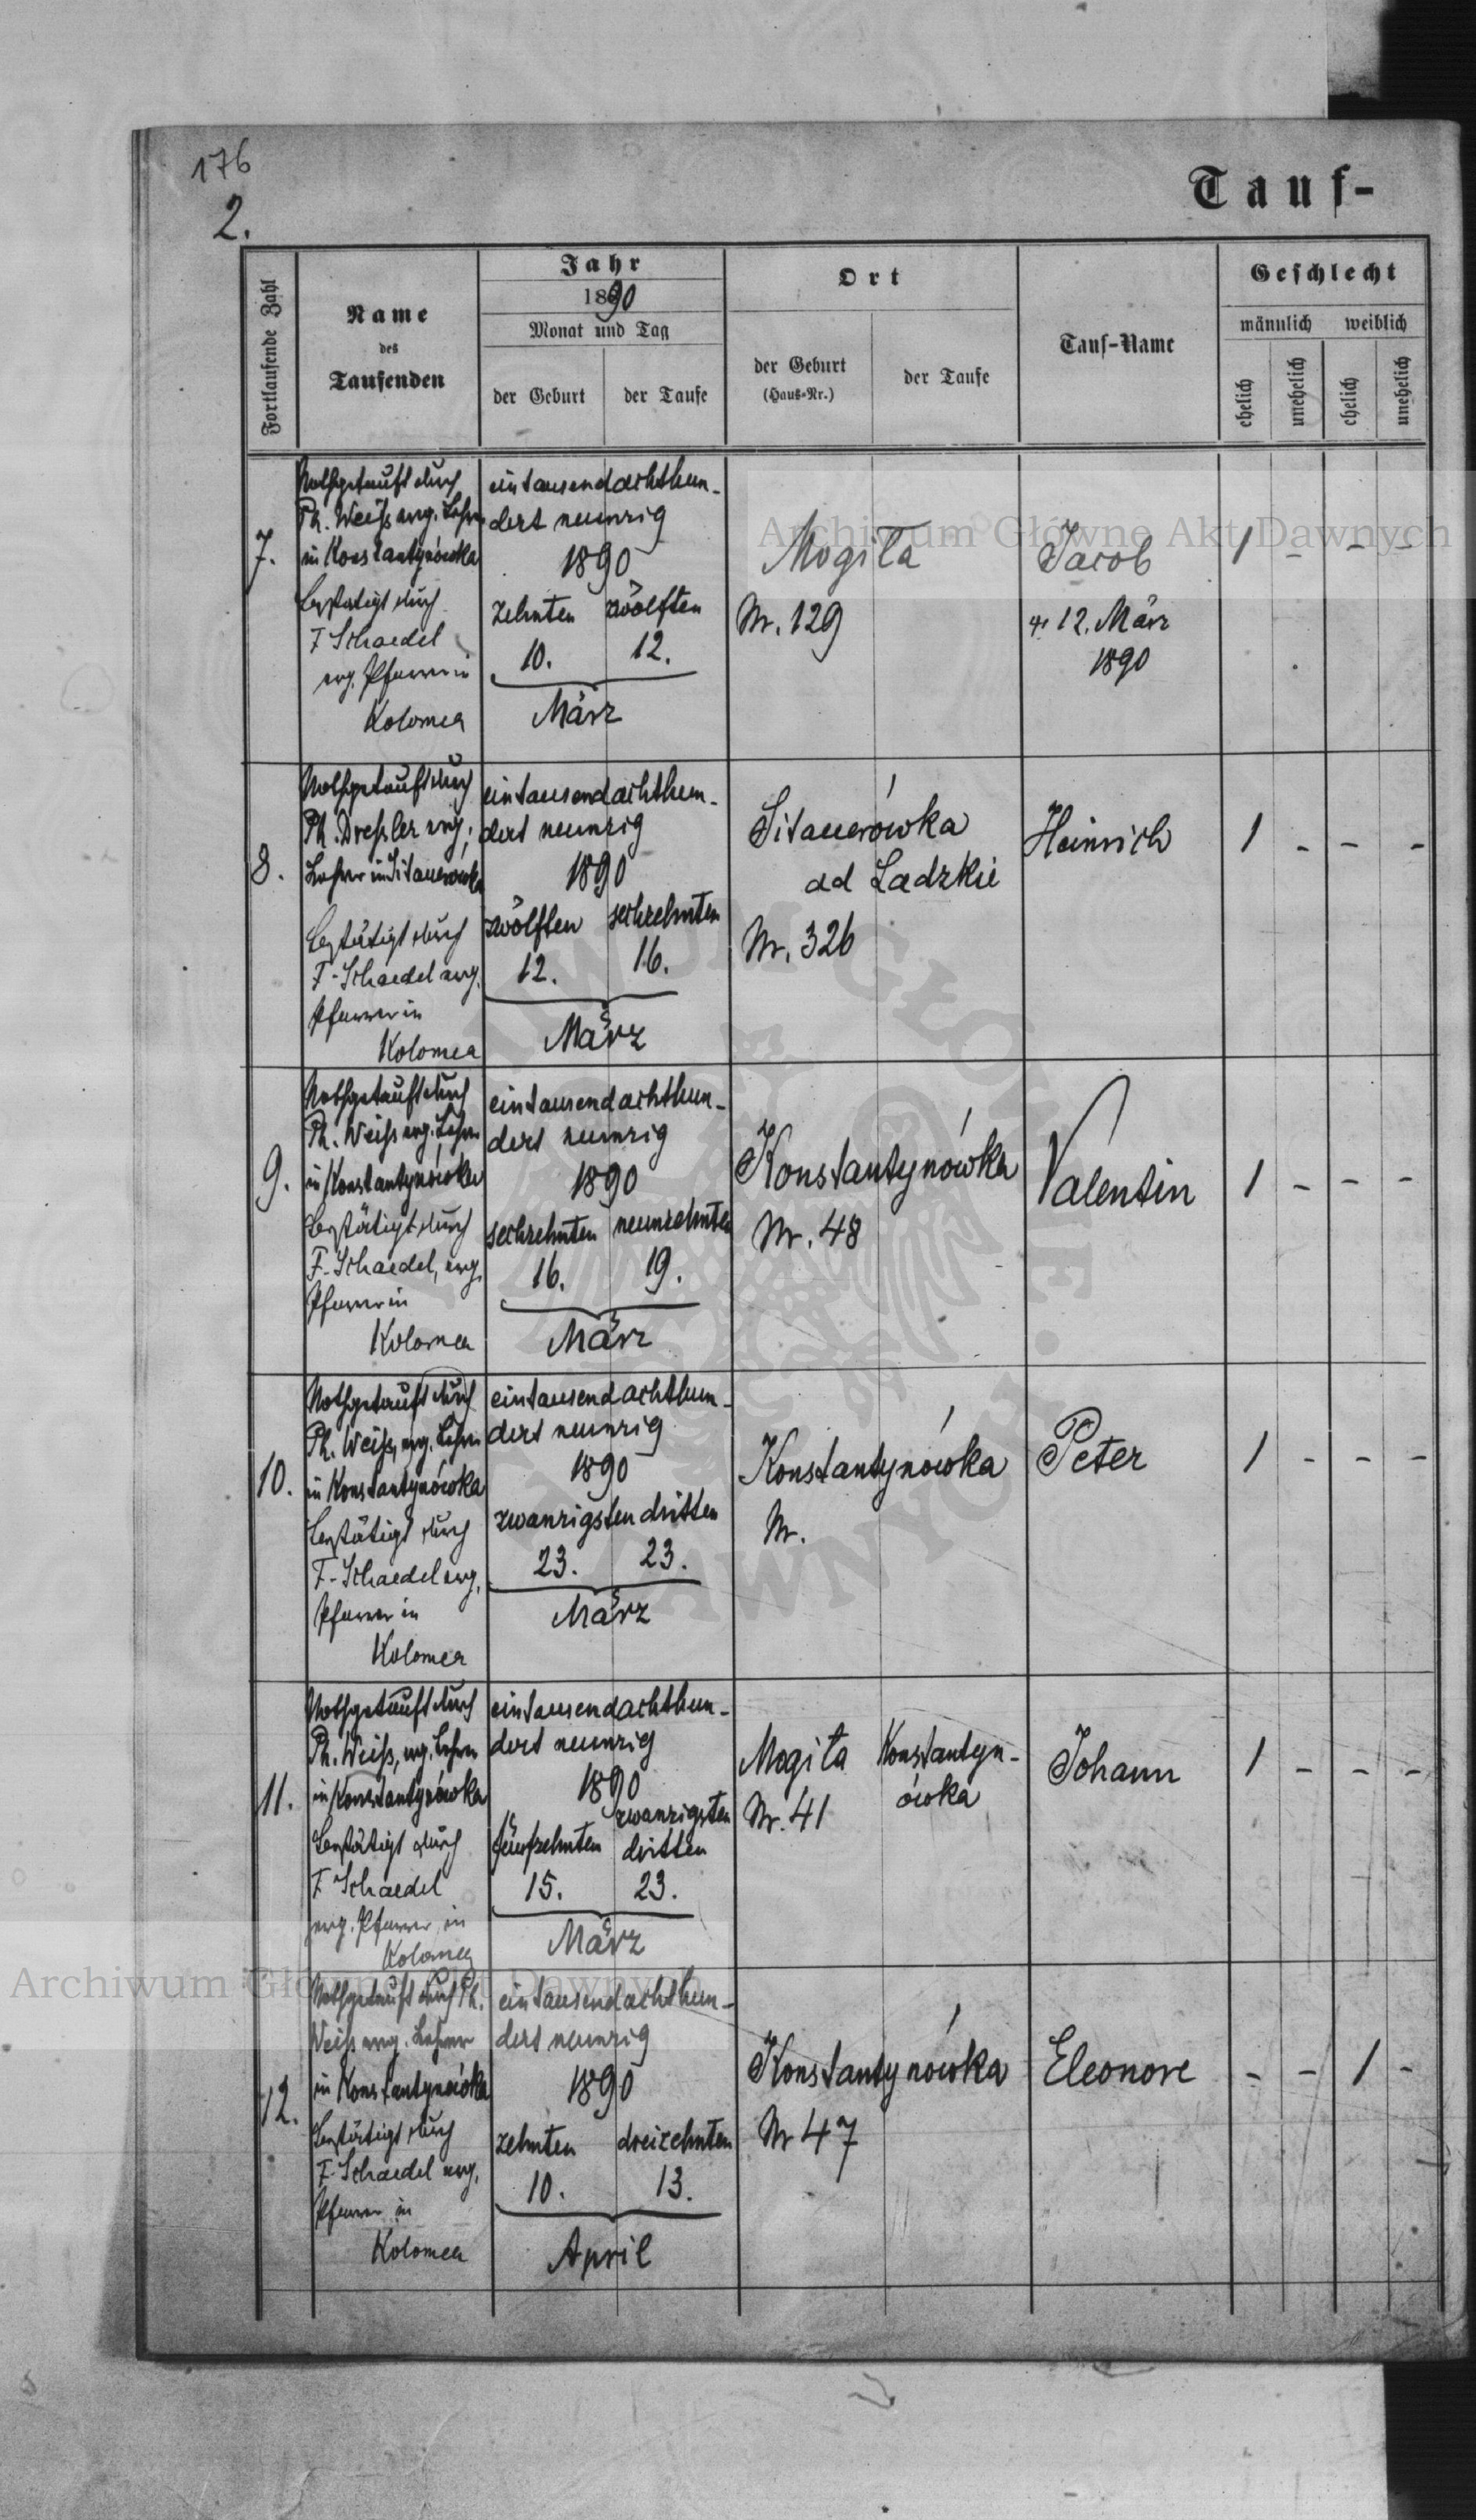 176
2.
Tauf-
Fortlaufende Zahl
Name
des
Taufenden
Jahr
1890
Monat und Tag
der Geburt
der Taufe
Ort
der Geburt
(Haus-Nr.)
der Taufe
Tauf-Name
Geschlecht
männlich
weiblich
ehelich
unehelich
ehelich
unehelich
7.
Nothgetauft durch
Ph. Weiss evg. Lehrer
in Konstantynówka
bestätigt durch
F Schaedel
evg. Pfarrer in
Kolomea
eintausendachthun-
dert neunzig
1890
zehnten zwölften
10. 12.
März
Mogiła
Nr. 129
Jacob
12. März
1890
1 - - -
8.
Nothgetauft durch
Ph. Dressler evg.
Lehrer in Sitauerowka
bestätigt durch
F. Schaedel evg.
Pfarrer in
Kolomea
eintausendachthun-
dert neunzig
1890
zwölften sechzehnten
12. 16.
März
Sitauerówka
ad Ladzkie
Nr. 326
Heinrich
1 - - -
9.
Nothgetauft durch
Ph. Weiss evg. Lehrer
in Konstantynówka
bestätigt durch
F. Schaedel, evg.
Pfarrer in
Kolomea
eintausendachthun-
dert neunzig
1890
sechzehnten neunzehnten
16. 19.
März
Konstantynówka
Nr. 48
Valentin
1 - - -
10.
Nothgetauft durch
Ph. Weiss, evg. Lehrer
in Konstantynówka
bestätigt durch
F. Schaedel evg.
Pfarrer in
Kolomea
eintausendachthun-
dert neunzig
1890
zwanzigsten dritten
23. 23.
März
Konstantynówka
Nr.
Peter
1 - - -
11.
Nothgetauft durch
Ph. Weiss, evg. Lehrer
in Konstantynówka
bestätigt durch
F Schaedel
evg. Pfarrer in
Kolomea
eintausendachthun-
dert neunzig
1890
zwanzigsten
fünfzehnten dritten
15. 23.
März
Mogiła
Nr. 41
Konstantyn-
ówka
Johann
1 - - -
12.
Nothgetauft durch Ph.
Weiss evg. Lehrer
in Konstantynówka
bestätigt durch
F. Schaedel evg.
Pfarrer in
Kolomea
eintausendachthun-
dert neunzig
1890
zehnten dreizehnten
10. 13.
April
Konstantynówka
Nr 47
Eleonore
- - 1 -
Archiwum Główne Akt Dawnych
Archiwum Główne Akt Dawnych